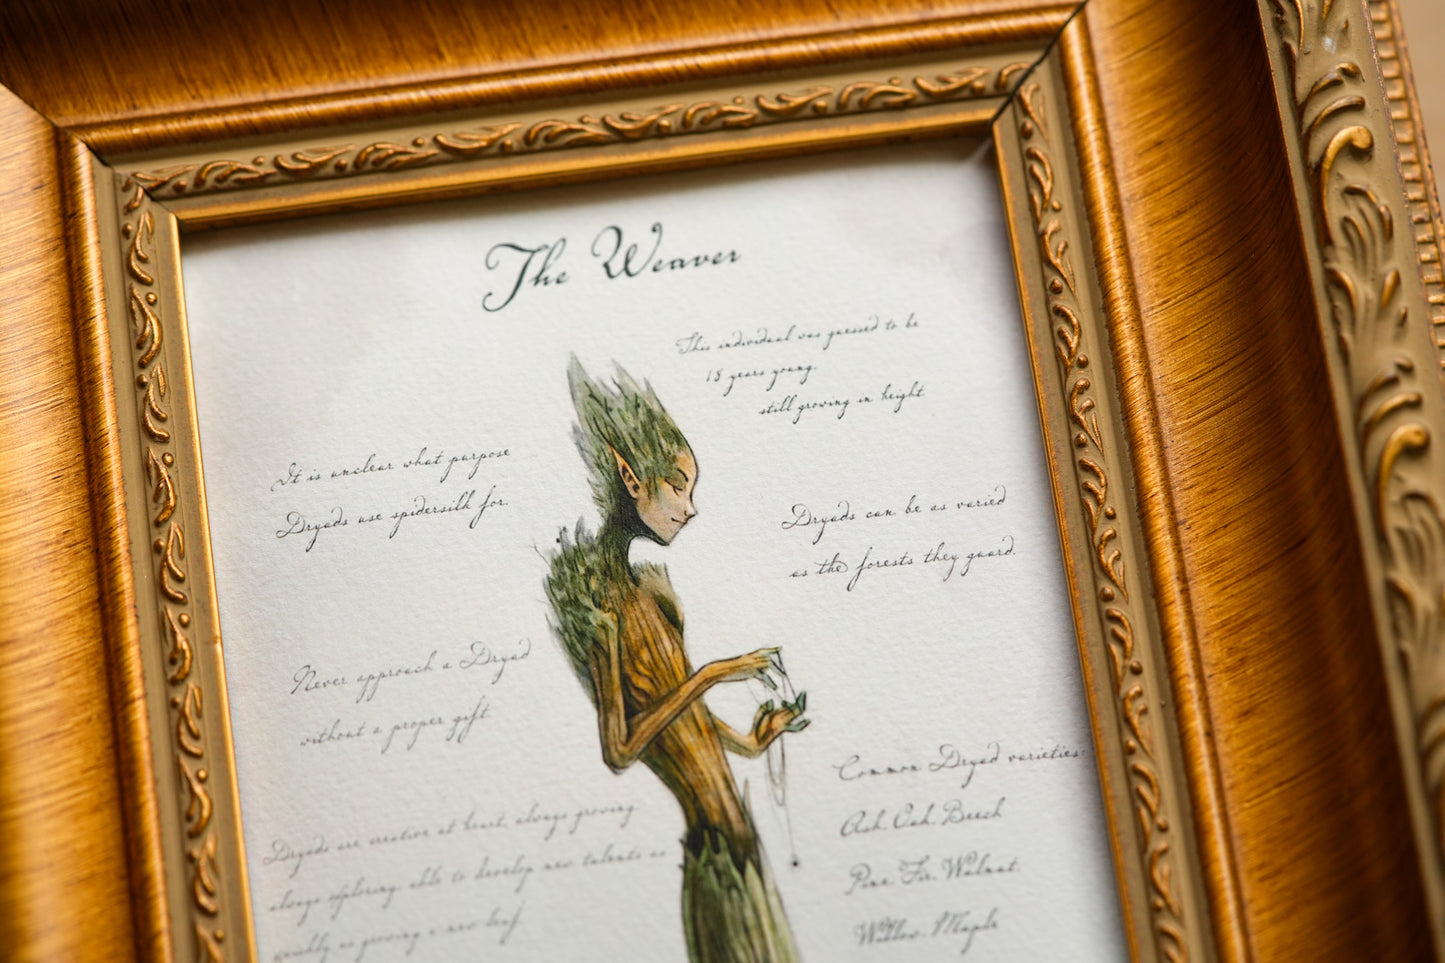 The Weaver
This individual was guessed to be
18 years young.
still growing in height
It is unclear what purpose
Dryads use spidersilk for.
Dryads can be as varied
as the forests they guard.
Never approach a Dryad
without a proper gift.
Common Dryad varieties:
Ash. Oak. Beech
Pine. Fir. Walnut.
Willow. Maple
Dryads are creative at heart, always growing
always exploring. able to develop new talents as
quickly as growing a new leaf.